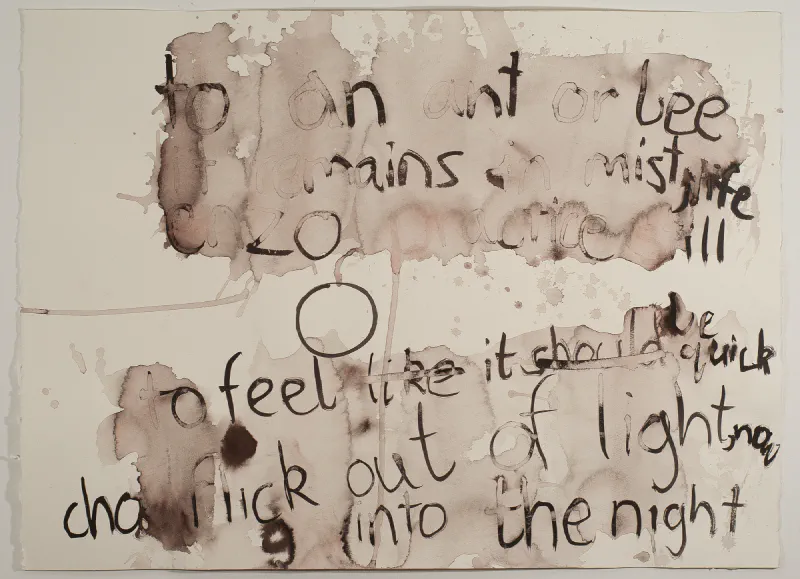 to an ant or bee
remains in mist, life
enzo practice ill
be
to feel like it should quick
flick out of light, now
into the night